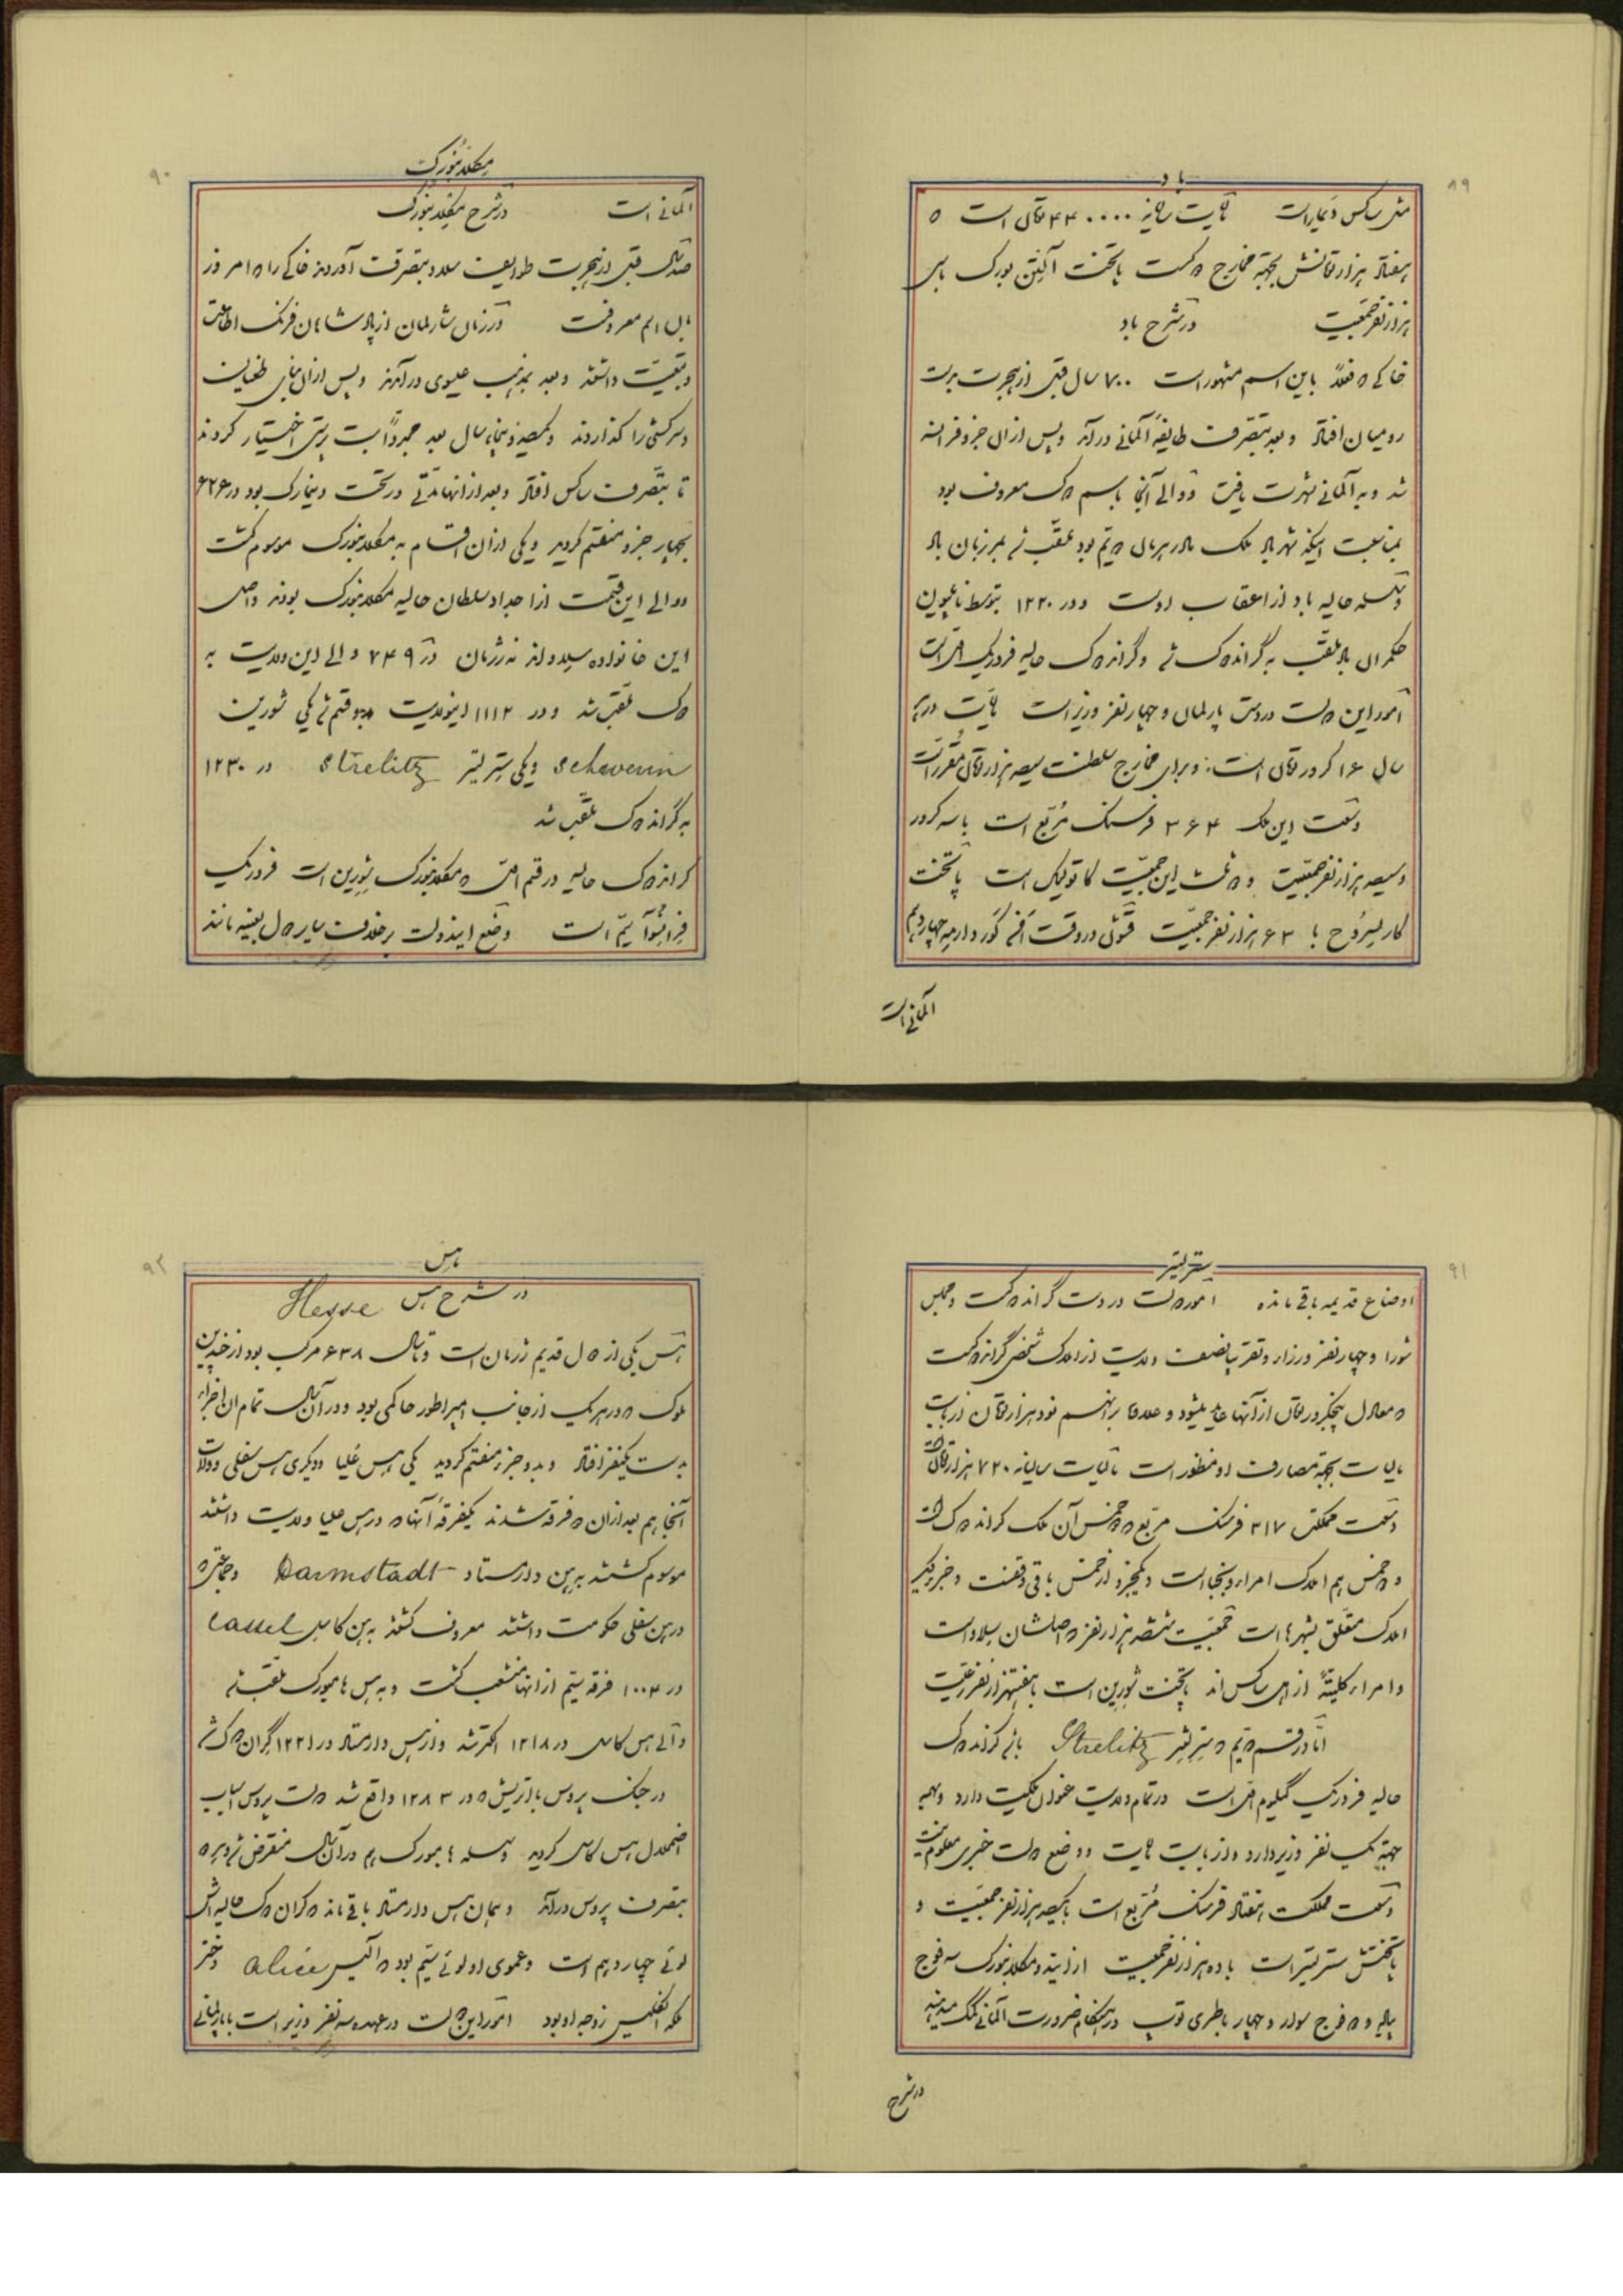 ۸۹
باد
مثل ساکس و تمایز است مالیات سالیانه ۴۴۰۰۰۰ تومان است ه
هفتاد هزار تومانش بجهته مخارج دکست پایتخت آلتن بورک با سی
هزار نفر جمعیت در شرح باد
خاکی ه فعلاً باین اسم مشهور است ۷۰۰ سال قبل از هجرت بدست
رومیان افتاد و بعد بتصرف طایفهٔ آلمانی درآمد و پس از آن جزو فرانسه
شد و به آلمانی شهرت یافت و والی آنجا باسم دک معروف بود
بمناسبت اینکه شهر باد ملک مادر هرمان دویم بود ملقب شد بمرزبان باد
و سلسله حالیه باد از اعقاب اوست و در ۱۲۲۰ بتوسط ناپلیون
حکمران باد ملقب به گرانددک شد و گرانددک حالیه فردریک اول است
امور این دولت در دست پارلمان و چهار نفر وزیر است مالیات در هر
سال ۱۶ کرور تومان است و برای مخارج سلطنت سیصد هزار تومان مقرر است
وسعت این ملک ۳۶۴ فرسنک مربع است با سه کرور
و سیصد هزار نفر جمعیت و دو ثلث این جمعیت کاتولیک است پایتخت
کارلسروح با ۶۳ هزار نفر جمعیت قشونی در وقت
آلمانی است
۹۰
مکلدنبورک
آلمانی است در شرح مکلدنبورک
صد سال قبل از هجرت طوایف سلاو بتصرف آوردند خاکی را ه امروز
باین اسم معروفست در زمان شارلمان از پادشاهان فرنک اطاعت
و تبعیت داشتند و بعد بمذهب عیسوی درآمدند و پس از آن بنای طغیان
و سرکشی را گذاردند و یکصد و پنجاه سال بعد مجدداً بت پرستی اختیار کردند
تا بتصرف ساکس افتاد و بعد از آنها مدتی در تحت دینمارک بود در ۶۲۶
بچهار جزو منقسم گردید و یکی از آن اقسام به مکلدنبورک موسوم گشت
و والی این قسمت از اجداد سلطان حالیه مکلدنبورک بودند و اصل
این خانواده سلاو اند نه ژرمان در ۷۴۹ والی این ولایت به
دک ملقب شد و در ۱۱۱۳ اینولایت بدو قسم شد یکی شورین
Schwerin و یکی سترلیتز Strelitz در ۱۲۳۰
به گرانددک ملقب شد
گرانددک حالیه در قسم اول ه مکلدنبورک شورین است فردریک
فرانسوآ سیم است وضع ایندولت برخلاف سایر دول بعینه مانند
۹۱
سترلیتز
اوضاع قدیمه باقی مانده امور دولت در دست گرانددکست و مجلس
شورا و چهار نفر وزراء و تقریباً نصف ولایت از املاک شخص گرانددکست
ه معادل پنجکرور تومان از آنها عاید میشود و علاوه بر اینهم نود هزار تومان از بابت
مالیات بجهته مصارف او منظور است مالیات سالیانه ۷۲۰ هزار تومان است
وسعت مملکتش ۳۱۷ فرسنک مربع ه دو خمس آن ملک گرانددک است
و دو خمس هم املاک امراء و نجباست و یکجزو از خمس باقی وقفست و جزو دیگر
املاک متعلق بشهرهاست جمعیت ششصد هزار نفر ه اصلشان سلاو است
و امراء کلیتهً از اهل ساکس اند پایتخت شورین است با هفتهزار نفر رعیت
امّا در قسم دویم ه سترلیتز Strelitz باشد گرانددک
حالیه فردریک گیلیوم اول است در تمام ولایت عنوان ملکیت دارد و بهمین
جهته یک نفر وزیر دارد و از بابت مالیات و وضع دولت خبری معلوم نیست
وسعت مملکت هفتاد فرسنک مربع است با یکصد هزار نفر جمعیت و
پایتختش سترلیتز است با ده هزار نفر جمعیت از ایندو مکلدنبورک سه فوج
پیاده و دو فوج سوار و چهار باطری توپ در هنگام ضرورت آلمانی کمک میدهند
در شرح
۹۲
هس
در شرح هس Hesse
هس یکی از دول قدیم ژرمان است و تا سال ۶۳۸ مرکب بود از چندین
ملوک ه در هر یک از جانب امپراطور حاکمی بود و در آن سال تمام آن اجزاء
بدست یکنفر افتاد و بدو جزو منقسم گردید یکی هس علیا و دیگری هس سفلی و ولات
آنجا هم بعد از آن دو فرقه شدند یکفرقهٔ آنها ه در هس علیا ولایت داشتند
موسوم گشتند به هس دارمستاد Darmstadt و جماعتی ه
در هس سفلی حکومت داشتند معروف گشتند به هس کاسل Cassel
در ۱۰۰۴ فرقه سیم از آنها منشعب گشت و به هس هامبورک ملقب شد
والی هس کاسل در ۱۲۱۸ الکتر شد و از هس دارمستاد در ۱۲۲۱ گران دک شد
در جنک پروس با اتریش ه در ۱۲۸۳ واقع شد دولت پروس اسباب
اضمحلال هس کاسل گردید و سلسله هامبورک هم در آن سال منقرض شد و هر دو
بتصرف پروس درآمد و همان هس دارمستاد باقی ماند ه گران دک حالیه اش
لوئی چهاردهم است و عموی او لوئی سیم بود ه آلیس Alice دختر
ملکه انگلیس زوجه او بود امور این دولت در عهده سه نفر وزیر است با پارلمانی